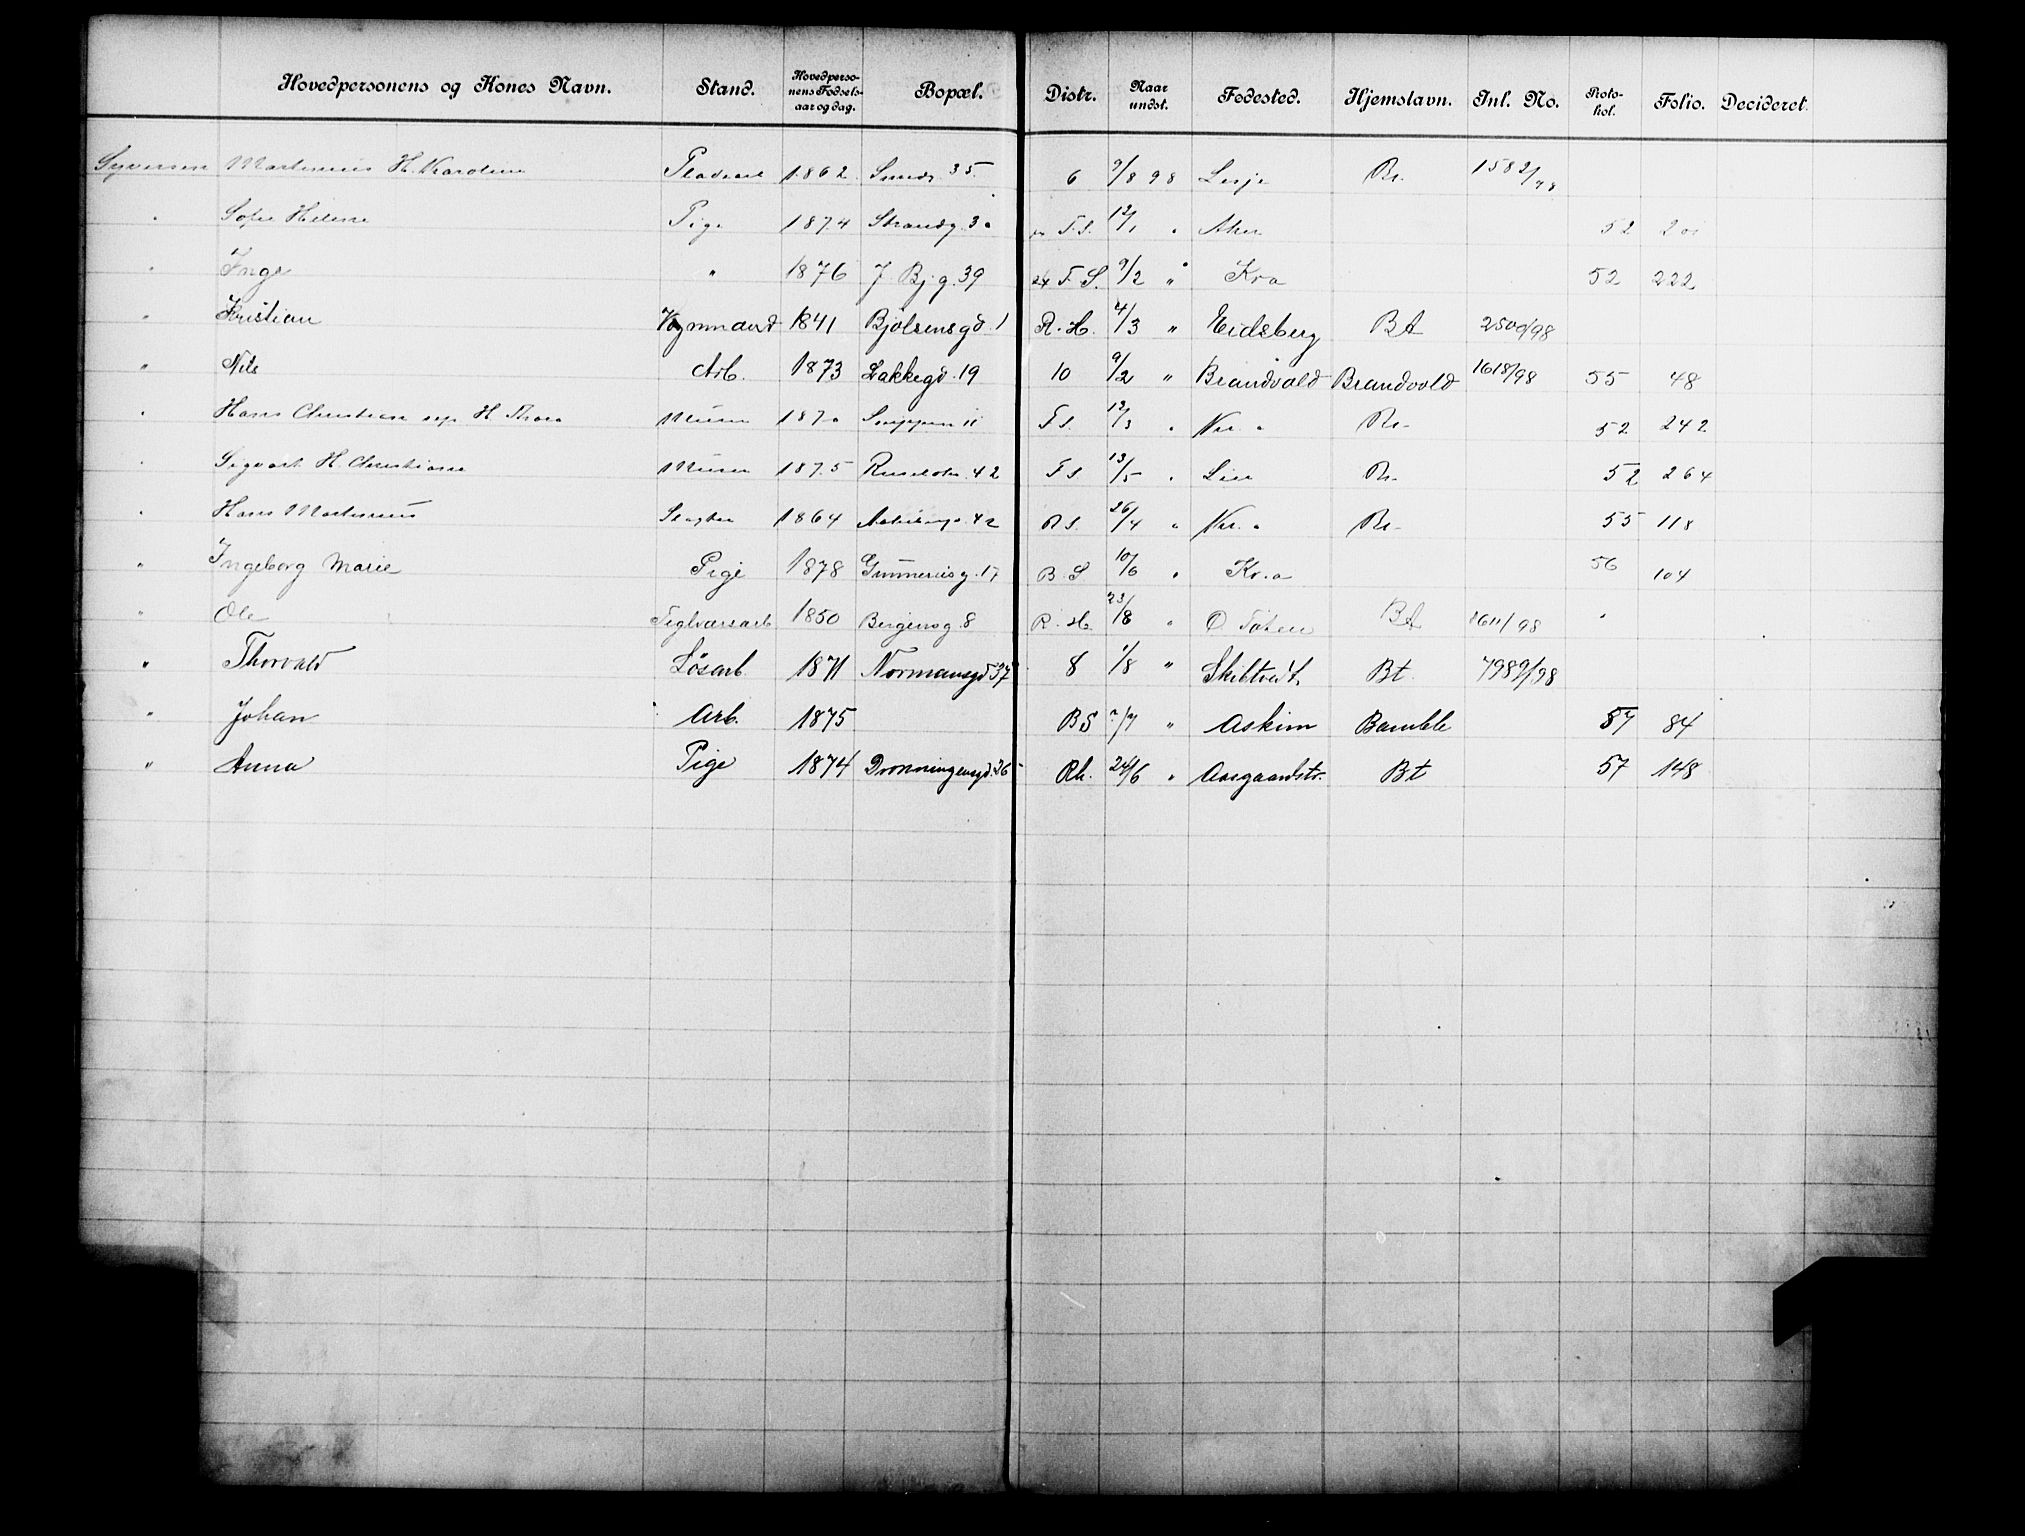 Hovedpersonens og Kones Navn. Stand. Hovedperso-nens Fødsels-aar og dag. Bopæl. Distr. Naar undst. Fødested. Hjemstavn. Inl. No. Proto-kol. Folio. Decideret.
Syversen Martinius H. Karoline 1862 35 6 9/8 98 Lesje Br. 1582/98
" Sofie Helene Pige 1874 Strandg. 3 F.S. 12/1 " Aker 52 201
" Inga " 1876 J. Bj g. 39 F.S. 9/2 " Kra 52 222
" Kristian Vognmand 1841 Bjølsensgd. 1 R.H. 4/3 " Eidsberg Bt 2500/98
" Nils Arb. 1873 Lakkegd. 19 10 9/2 " Brandvold Brandvold 1618/98 55 48
" Hans Christian H. Thora Murer 1870 11 F.S. 12/3 " Kr. a Br. 52 242
" Sigvart H. Christiane Murer 1875 42 F.S. 13/5 " Lier Br. 52 264
" Hans Martinius Slagter 1864 42 R.S. 26/4 " Kr. a Br. 55 118
" Ingeborg Marie Pige 1878 Gunnerusg. 17 B.S 10/6 " Kr.a 56 104
" Ole Teglværsarb 1850 Bergensg. 8 R.H. 23/8 " Ø. Toten Bt 1611/98 "
" Thorvald Løsarb. 1871 Normansgd 37 8 1/8 " Skibtvedt. Bt. 7989/98
" Johan Arb. 1875 BS 7/7 " Askim Bamble 57 84
" Anna Pige 1874 Dronningensgd. 36 Rh. 24/6 " Aasgaardstr. Bt 57 148